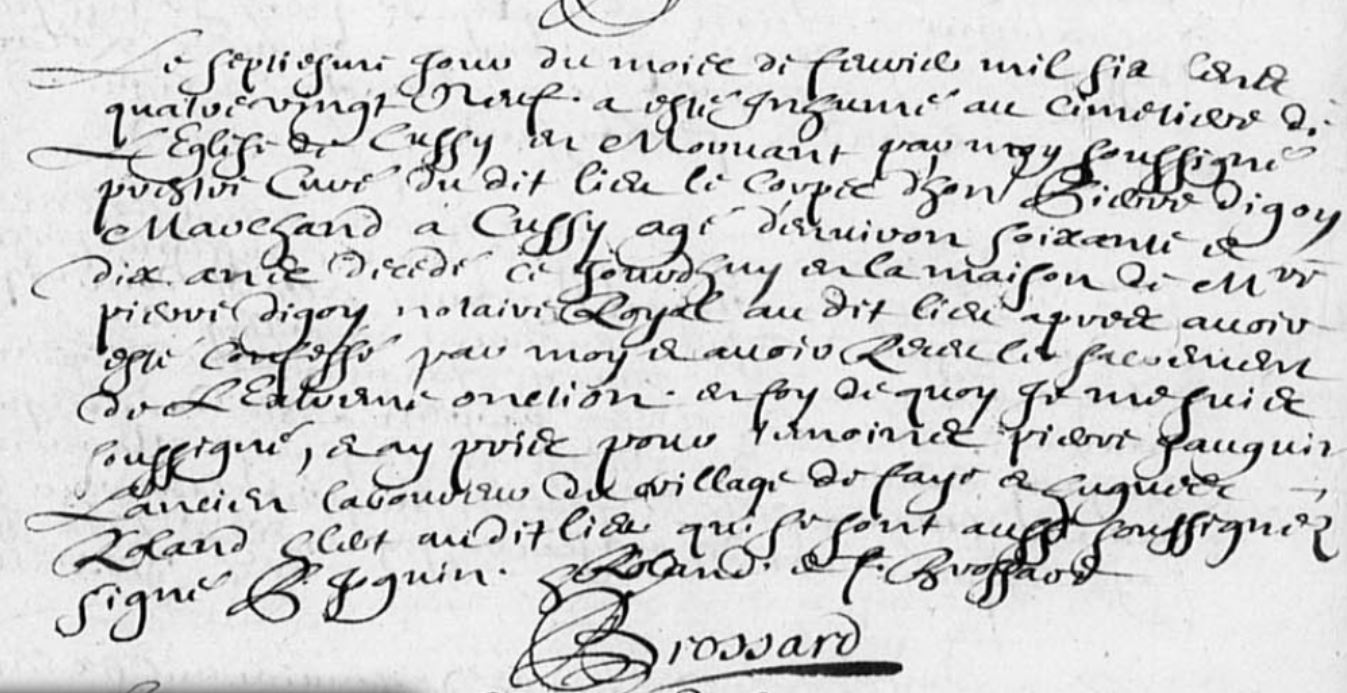 Le septiesme jour du mois de fevrier mil six cents
quatre vingt Neuf. a esté Inhumé au Cimetiere de
L'Eglise de Cussy en Morvant par moy soussigné
prestre Curé du dit lieu le corps d'hon Pierre digoy
Marchand a Cussy agé d'environ soixante et
dix ans decedé ce jourdhuy en la maison de Mre
pierre digoy notaire Royal au dit lieu apres avoir
esté Confessé par moy et avoir Receu le sacrement
de L'Extreme onction. en foy de quoy je me suis
soussigné, et ay pris pour temoins pierre Jauguin
L'ancien laboureur du village de faye et hugues
Roland clerc audit lieu qui se sont aussi soussignez
signé P. Joguin. H Roland. et f. Brossard
Brossard